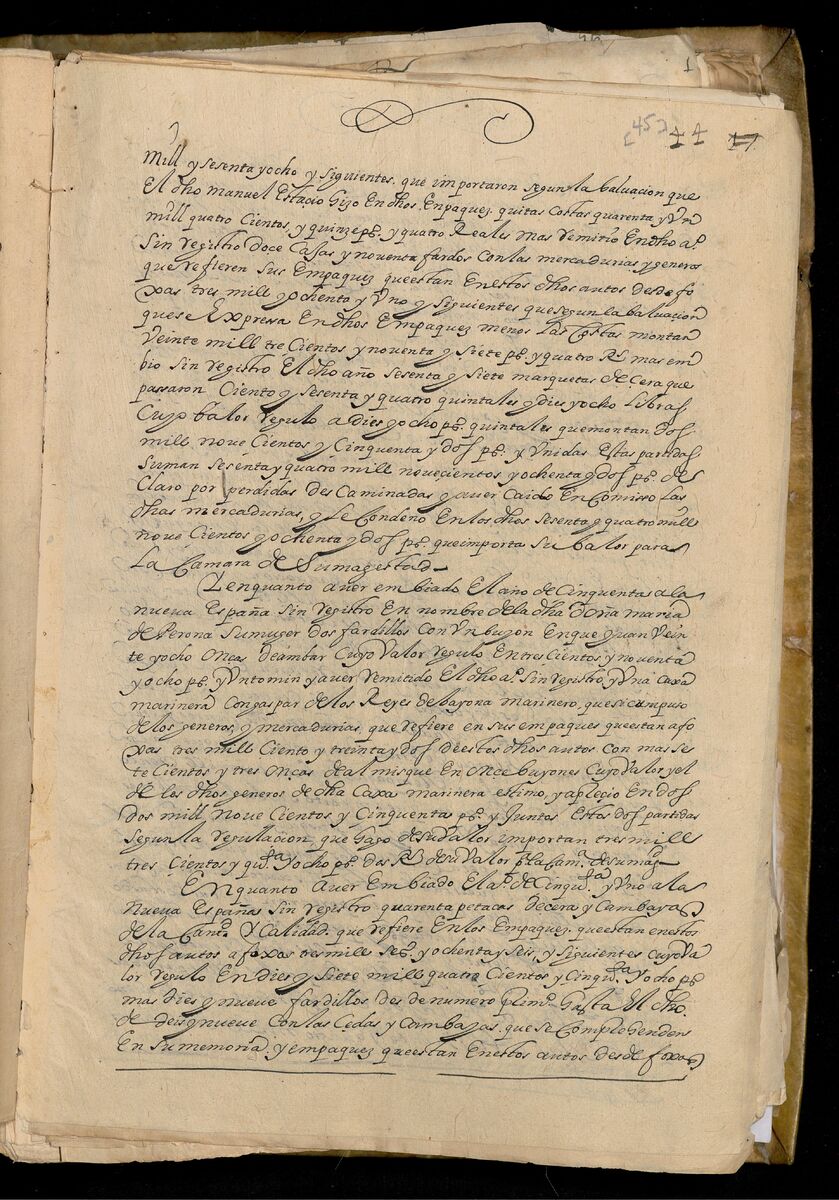 [45]
44 17
Mill y sesenta y ocho y siguientes. que importaron segun la baluaçion que
El dho manuel Estaçio Hizo En dhos. Enpaquez. quitas Costas quarenta y Vn
mill quatro Cientos, y quinze ps. y quatro Reales mas remitio En dho aº.
Sin registro doce Caxas y noventa fardos con las mercadurias y generos
que refieren sus Empaquez que estan En estos dhos autos desde fo
xas tres mill y ochenta y Vno y siguientes que segun la baluaçion
que se Expressa En dhos Empaquez menos las Costas montan
Veinte mill tres Cientos y noventa y siete ps. y quatro Rs mas em
bio sin registro El dho año sesenta y siete marquetas de Cera que
passaron Ciento y sesenta y quatro quintales y dies y ocho libras
Cuyo balor regulo a dies y ocho ps. quintales que montan dos
mill nove Cientos y Cinquenta y dos ps. y Vnidas Estas partidas
Suman sesenta y quatro mill noveçientos y ochenta y dos ps. de
Claro por perdidas des Caminadas y aver Caido En Comisso las
dhas mercadurias, y Le Condeno En los dhos sesenta y quatro mill
nove Cientos y ochenta y dos ps. que importa su balor para
La Camara de Su magestad
Y en quanto aver embiado El año de Cinquenta a la
nueva España Sin registro En nombre de la dha Doña maria
de Perona Su muger dos fardillos con Vn buyon En que Yvan Vein
te y ocho onças de ámbar Cuyo Valor regulo En tres Cientos y noventa
y ocho ps. y Vn tomin y aver remitido El dho aº. Sin registro, y Vna caxa
marinera Con gaspar de los Reyes de bayona marinero, que se compuso
de los generos, y mercadurias, que refiere en sus empaques que estan a fo
xas tres mill Ciento y treinta y dos de estos dhos autos con mas Se
te Cientos y tres onças de almisque En onçe buyones Cuyo Valor y el
de los dhos generos de dha Caxa marinera estimo, y apreçio En dos
dos mill nove Cientos y Cinquenta ps. y Juntos Estos dos partidas
Segun la regulaçion que Hago de su Valor importan tres mill
tres Cientos y quata. Y ocho ps. dos Rs de su Valor pª la Camª. de su magd.
En quanto Aver Embiado El aº. de Cinquta. y Vno a la
nueva España Sin registro quarenta petacas de cera y Cambayas
de la Cantd. Y Calidad. que refiere En los Empaquez. que estan en estos
dhos autos a foxas tres mill setª. y ochenta y seis, y siguientes cuyo Va
lor regulo En dies y siete mill quatro Cientos y Cinquta. Y ocho ps.
mas dies y nueve fardillos des de numero primº. Hasta El dho.
de dies y nueve Con las Cedas y Cambayas. que se Comprehenden
En Su memoria. y empaquez que estan En estos autos desde foxas